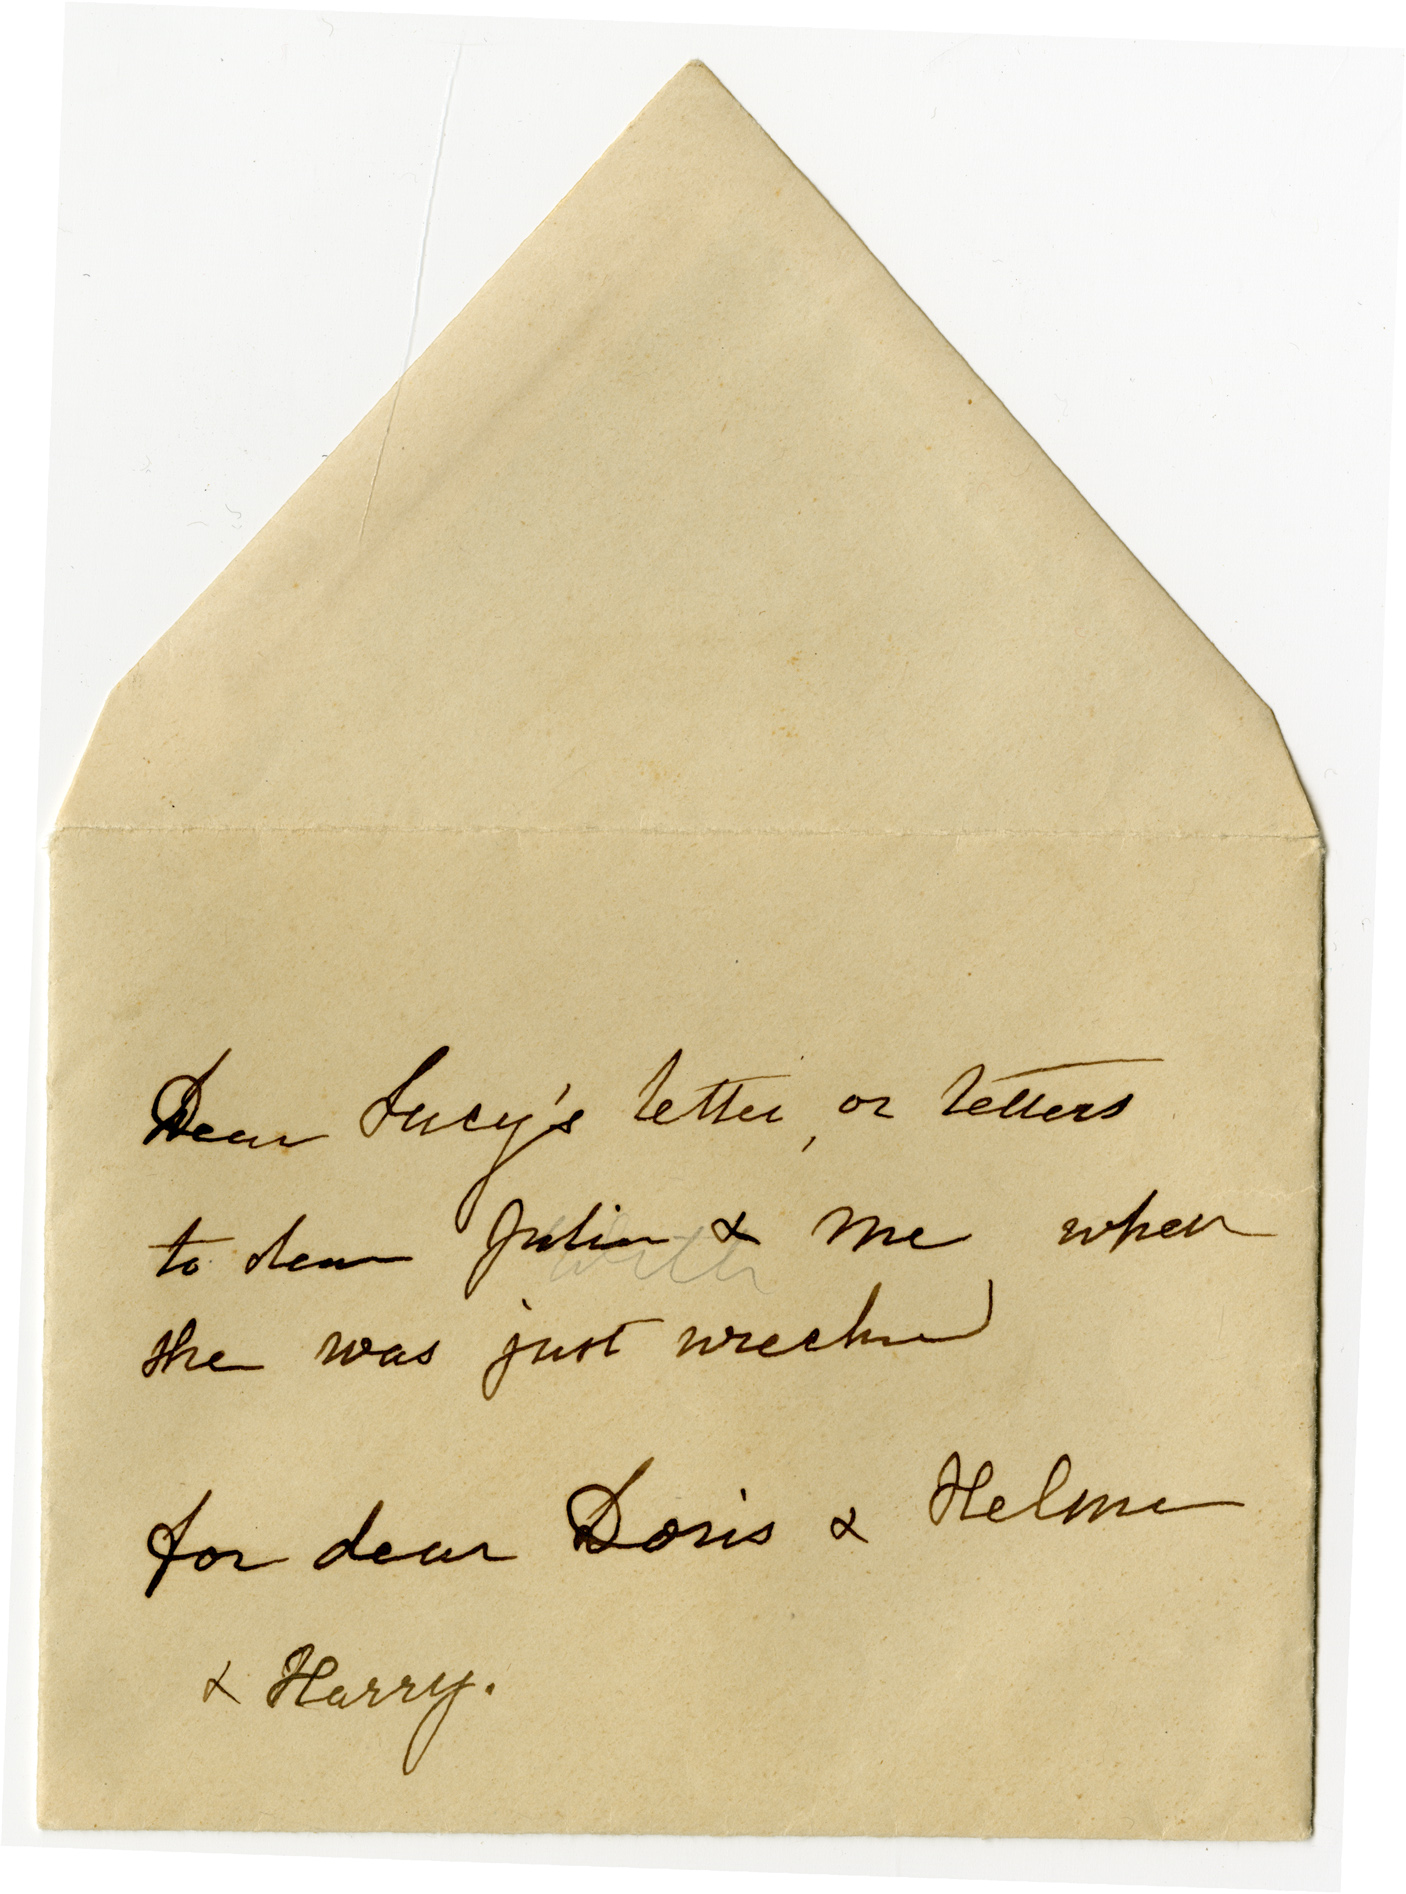 Dear Lucy's letter, or letters
to dear Julia & me when
she was just wrecked
for dear Doris &
& Harry.